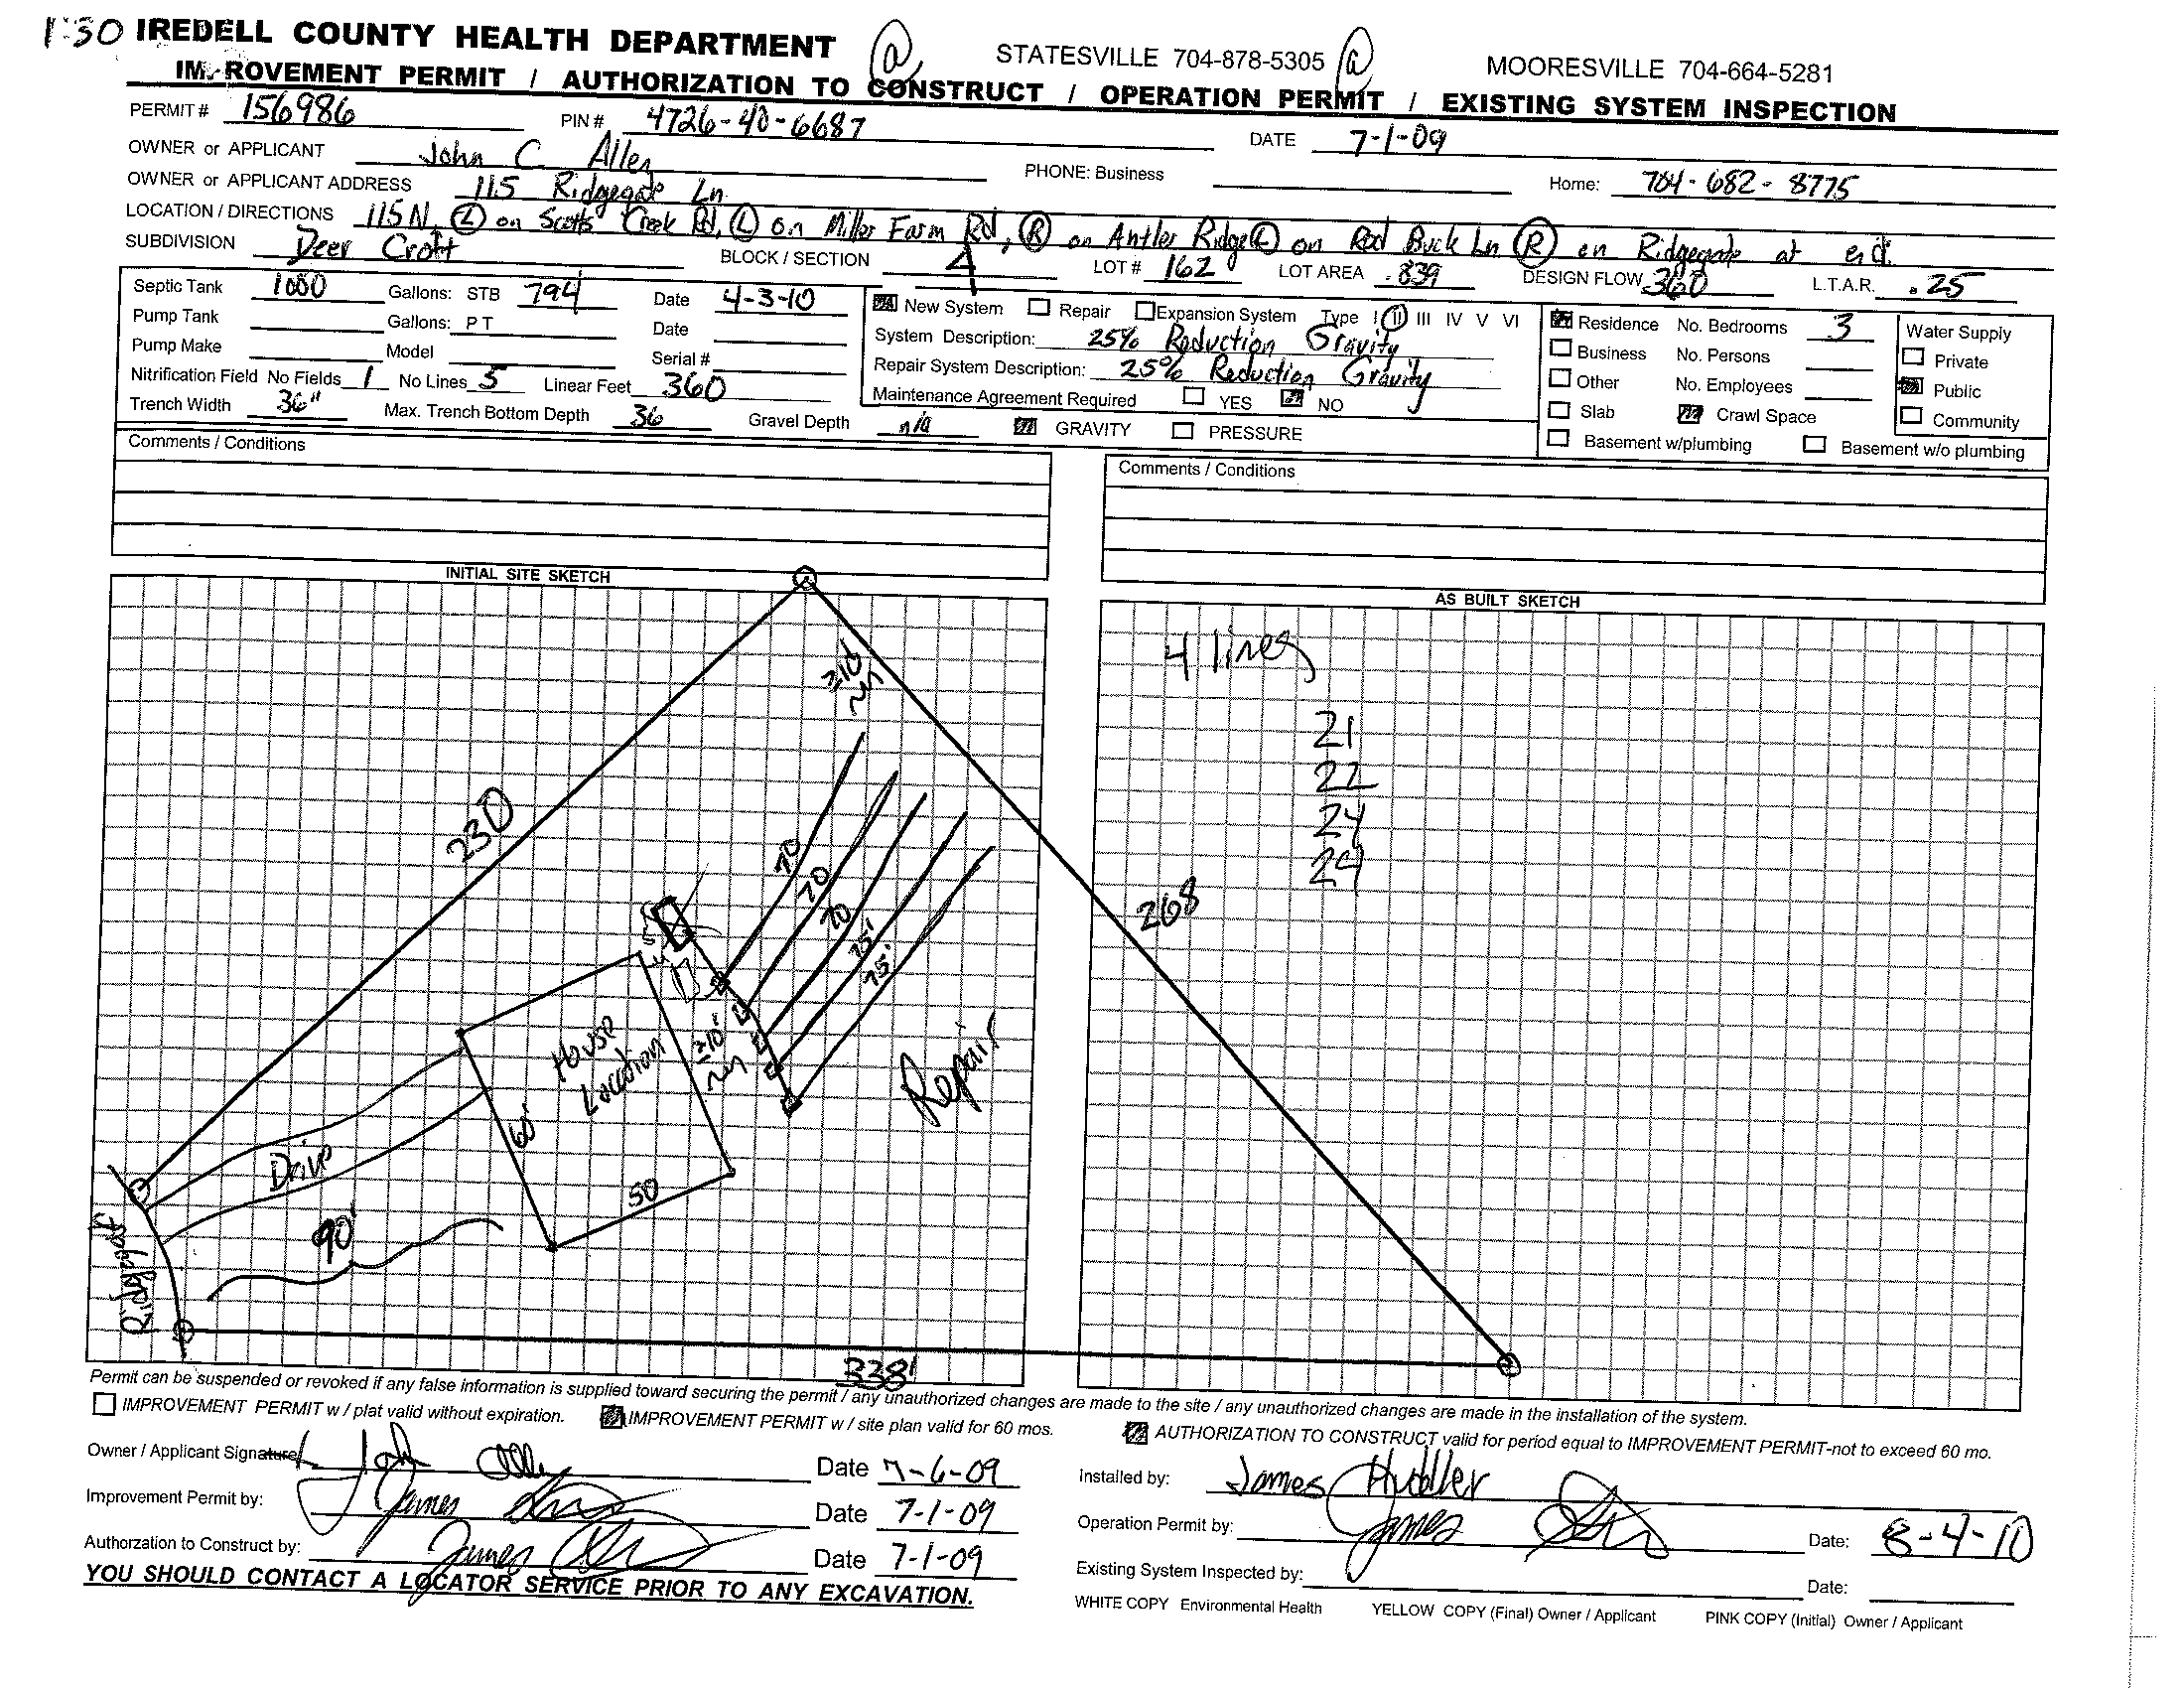 1:30 IREDELL COUNTY HEALTH DEPARTMENT @ STATESVILLE 704-878-5305 @ MOORESVILLE 704-664-5281
IMPROVEMENT PERMIT / AUTHORIZATION TO CONSTRUCT / OPERATION PERMIT / EXISTING SYSTEM INSPECTION
PERMIT # 156986 PIN # 4726-40-6687 DATE 7-1-09
OWNER or APPLICANT John C Allen PHONE: Business Home: 704-682-8775
OWNER or APPLICANT ADDRESS 115 Ridgegate Ln.
LOCATION / DIRECTIONS 115 N, L on Scotts Creek Rd, L on Miller Farm Rd, R on Antler Ridge L on Rod Buck Ln R on Ridgegate at end.
SUBDIVISION Deer Croft BLOCK / SECTION 4 LOT # 162 LOT AREA .839 DESIGN FLOW 360 L.T.A.R. .25
Septic Tank 1000 Gallons: STB 794 Date 4-3-10 New System Repair Expansion System Type I II III IV V VI Residence No. Bedrooms 3 Water Supply
Pump Tank Gallons: PT Date System Description: 25% Reduction Gravity Business No. Persons Private
Pump Make Model Serial # Repair System Description: 25% Reduction Gravity Other No. Employees Public
Nitrification Field No Fields 1 No Lines 5 Linear Feet 360 Maintenance Agreement Required YES NO Slab Crawl Space Community
Trench Width 36" Max. Trench Bottom Depth 36 Gravel Depth n/a GRAVITY PRESSURE Basement w/plumbing Basement w/o plumbing
Comments / Conditions Comments / Conditions
INITIAL SITE SKETCH AS BUILT SKETCH
4 lines
≥10'
21
22
24
24
230
268
70
70
70
75'
75'
House
Location
≥10'
Repair
60'
50
Drive
90'
Ridgegate
338'
Permit can be suspended or revoked if any false information is supplied toward securing the permit / any unauthorized changes are made to the site / any unauthorized changes are made in the installation of the system.
IMPROVEMENT PERMIT w / plat valid without expiration. IMPROVEMENT PERMIT w / site plan valid for 60 mos. AUTHORIZATION TO CONSTRUCT valid for period equal to IMPROVEMENT PERMIT-not to exceed 60 mo.
Owner / Applicant Signature John Allen Date 7-6-09 Installed by: James Hudler
Improvement Permit by: James Date 7-1-09 Operation Permit by: James Date: 8-4-10
Authorzation to Construct by: James Date 7-1-09 Existing System Inspected by: Date:
YOU SHOULD CONTACT A LOCATOR SERVICE PRIOR TO ANY EXCAVATION.
WHITE COPY Environmental Health YELLOW COPY (Final) Owner / Applicant PINK COPY (Initial) Owner / Applicant